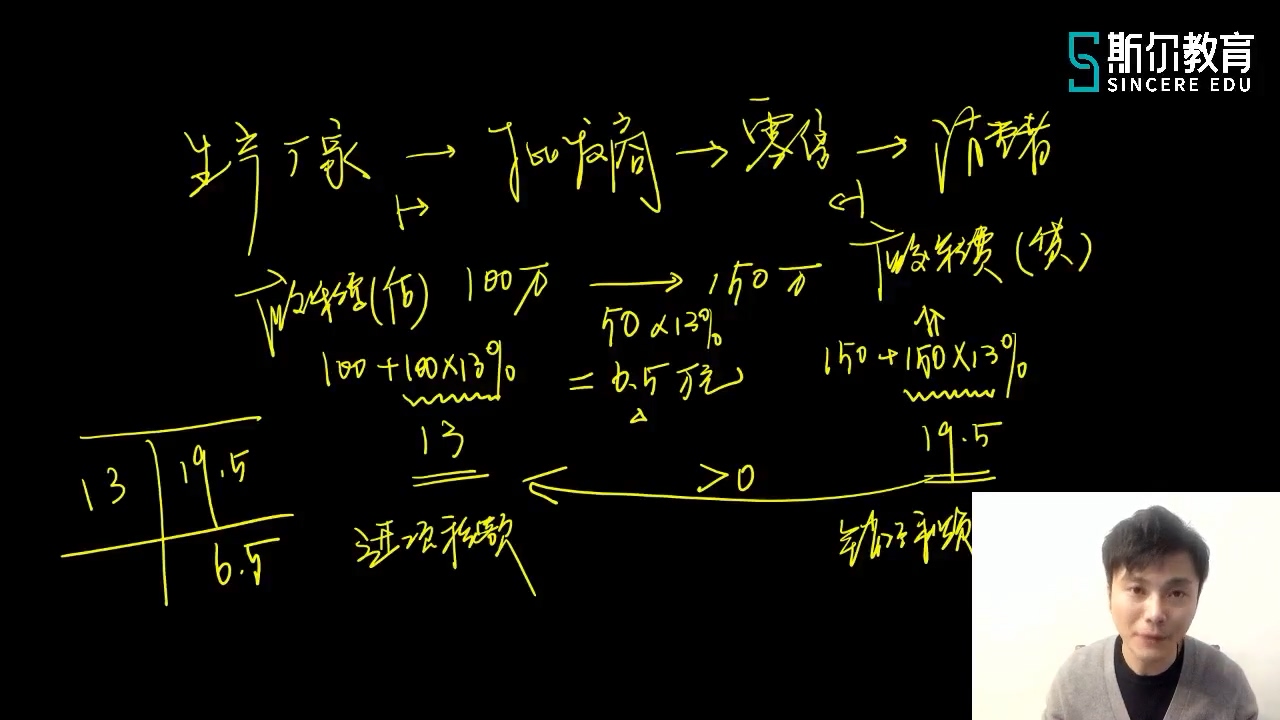 斯尔教育
SINCERE EDU
生产厂家 → 批发商 → 零售 → 消费者
应交税费(借) 100万 → 150万 应交税费(贷)
50×13%
100+100×13% = 6.5万元 150+150×13%
13 19.5
13 19.5
>0
6.5
进项税额 销项税额